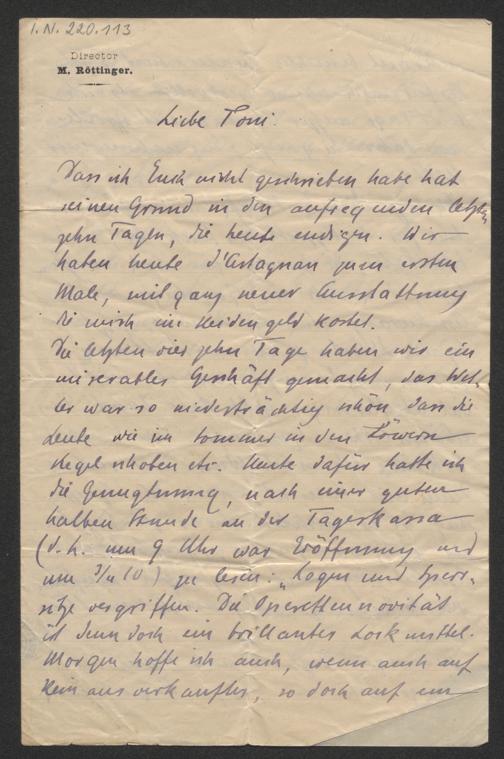 I. N. 220.113
Director
M. Röttinger.
Liebe Toni.
Dass ich Euch nicht geschrieben habe hat
seinen Grund in den aufregenden letzten
zehn Tagen, die heute endigen. Wir
haben heute d'Artagnan zum ersten
Male, mit ganz neuer Ausstattung
die mich ein Heidengeld kostet.
Die letzten vierzehn Tage haben wir ein
miserables Geschäft gemacht, das Wet-
ter war so niederträchtig schön dass die
Leute wie im Sommer in den
Kegel schoben etc. Heute dafür hatte ich
die Genugtuung, nach einer guten
halben Stunde an der Tageskassa
(d. h. um 9 Uhr war Eröffnung und
um 3/4 10) zu lesen: „Logen und Sperr-
sitze vergriffen. Die Operettennovität
ist denn doch ein brillantes Lockmittel.
Morgen hoffe ich auch, wenn auch auf
kein ausverkauftes, so doch auf ein